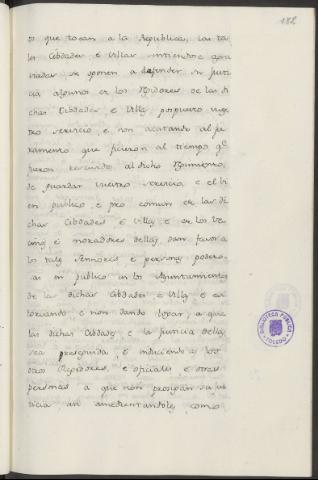 182
os que tocan a la Republica, las ta
les Cibdades e Villas entiende agra
viadas, se oponen a defender su justi
cia algunos de los Rejidores de las di
chas Cibdades, e Villas pospuesto vues
tro servicio, e non acatando al ju
ramento que ficieron al tiempo qe
fueron rescividos al dicho Rejimiento,
de guardar vuestro servicio e el bi
en publico, e pro comun de las di
chas Cibdades, e Villas e de los Ve
cinos e moradores dellas, dan favor a
los tales Señores e personas podero
sas en publico en los Ayuntamientos
de las dichas Cibdades e Villas e es
torvando, e non dando lugar, a que
las dichas Cibdades, e la Justicia dellas
sea proseguida, e induciendo a los
otros Rejidores, e oficiales e otras
personas a que non prosigan su jus
ticia en amedrentandoles, como
BIBLIOTECA PUBLICA
TOLEDO